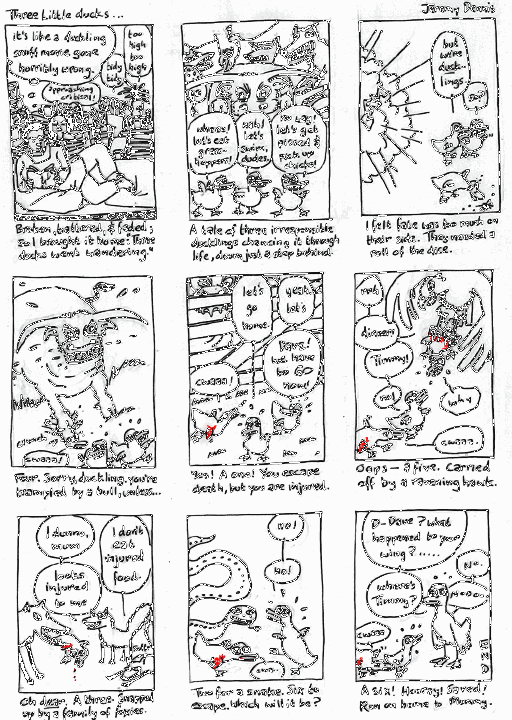 Three Little ducks...
Jeremy Dennis
it's like a duckling
snuff movie gone
horribly wrong.
too
high
too
high
tidy
tidy
approaching
critical!
Broken, battered, & faded,
so I brought it home. "Three
ducks went wandering."
let's eat
let's
swim,
dudes
let's get
pissed &
pick up
chicks!
A tale of three irresponsible
ducklings chancing it through
life, doom just a step behind.
but
we're
duck..
lings..
I felt fate was too much on
their side. They needed a
roll of the dice.
Four. Sorry, duckling, you're
trampled by a bull, unless...
let's
go
home.
yeah.
let's
Dave!
we have
to GO
now!
Yes! A one! You escape
death, but you are injured.
Timmy!
no!
why
Oops – a five. Carried
off by a ravening hawk.
I dunno,
mum
looks
injured
to me
I don't
eat
injured
food.
Oh dear. A three. Snapped
up by a family of foxes.
no!
No!
Two for a snake. Six to
escape. Which will it be?
D-Dave? What
happened to your
wing?......
where's
Timmy?
A six! Hooray! Saved!
Run on home to Mummy.